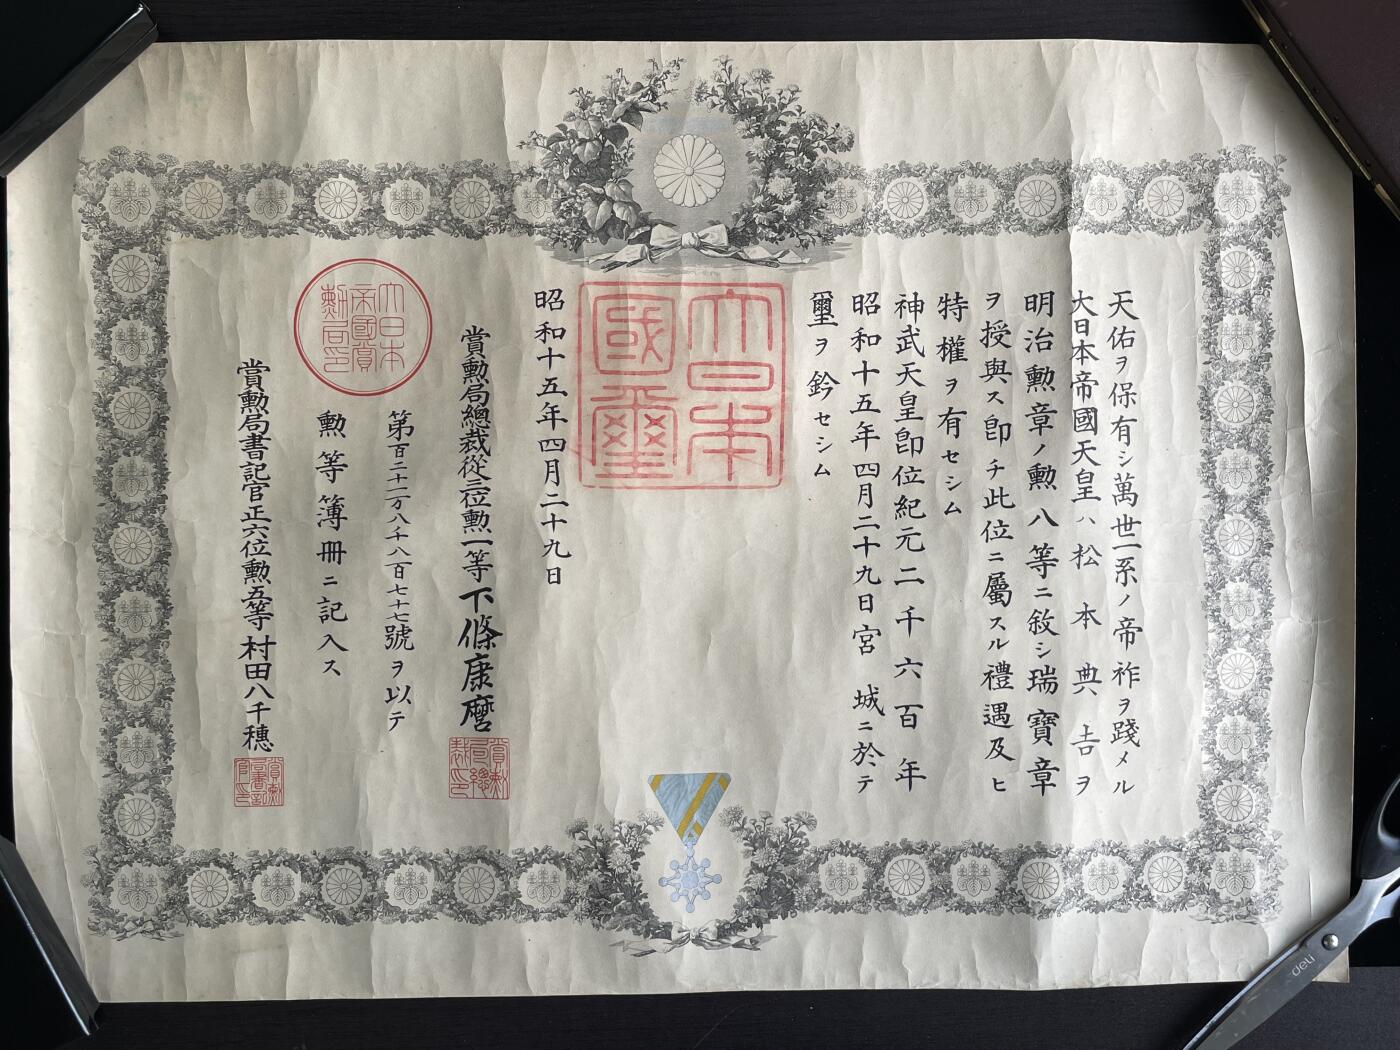 天佑ヲ保有シ萬世一系ノ帝祚ヲ踐メル
大日本帝國天皇ハ松本典吉ヲ
明治勲章ノ勲八等ニ敘シ瑞寶章
ヲ授與ス卽チ此位ニ屬スル禮遇及ヒ
特權ヲ有セシム
神武天皇卽位紀元二千六百年
昭和十五年四月二十九日宮城ニ於テ
璽ヲ鈐セシム
大日本
國璽
昭和十五年四月二十九日
賞勲局總裁從三位勲一等下條康麿
賞勲局總裁印
第百二十二万八千八百七十七號ヲ以テ
勲等簿冊ニ記入ス
大日本帝國賞勲局印
賞勲局書記官正六位勲五等村田八千穗
賞勲局書記官印
deli